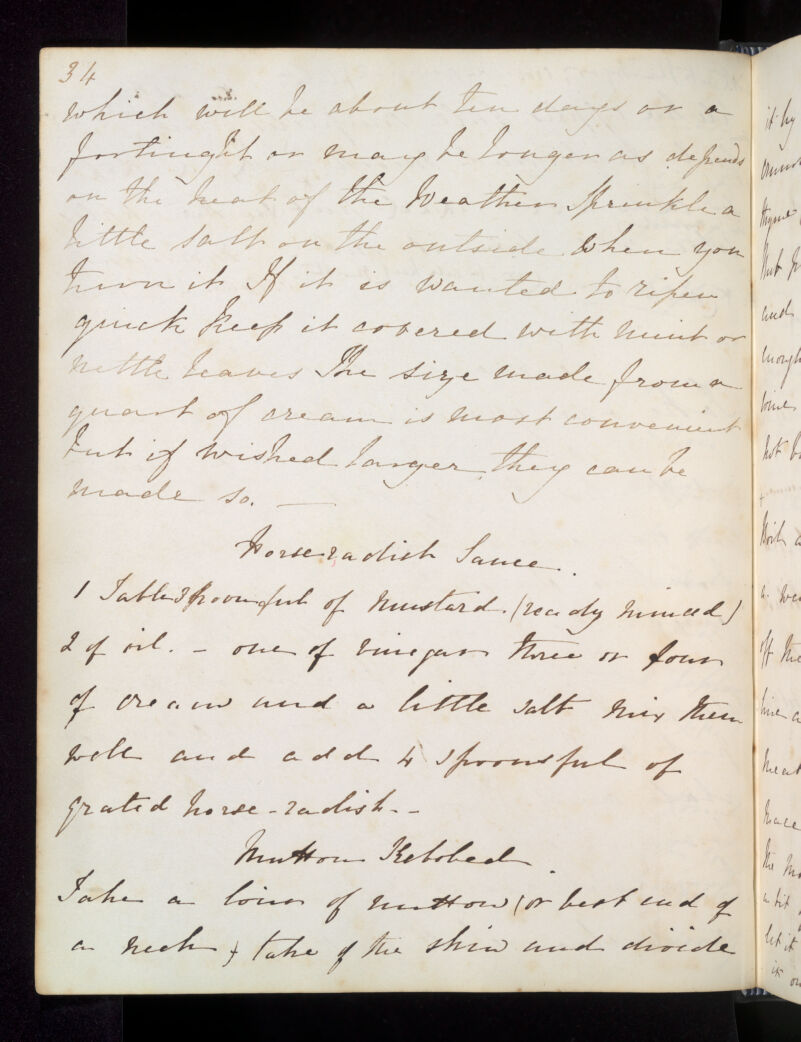 34
which will be about ten days or a
fortinght or may be longer as depends
on the heat of the Weather Sprinkle a
little salt on the outside when you
turn it If it is wanted to ripen
quick keep it covered with mint or
nettle leaves The size made from a
quart of cream is most convenient
but if wished larger they can be
made so. —
Horse radish Sauce.
1 Tablespoonful of mustard. (ready mixed)
2 of oil. - one of vinegar three or four
of cream and a little salt mix them
well and add 4 spoonsful of
grated horse-radish. -
Mutton Kebobed.
Take a loin of mutton (or best end of
a neck) take of the skin and divide
it by
thyme
and
enough
not
a
off the
meat
mace
the
a bit
let it
it